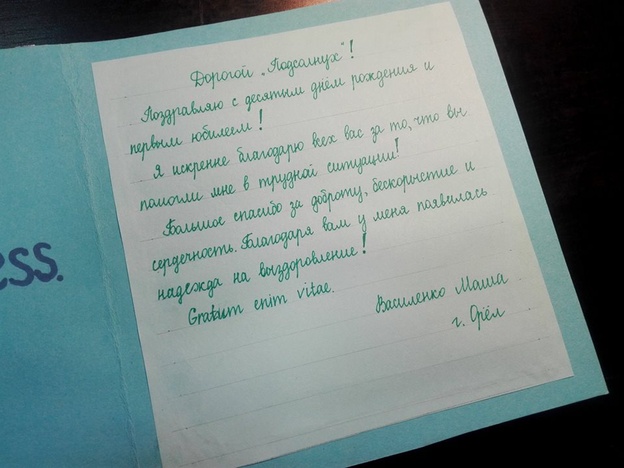 Дорогой „Подсолнух"!
Поздравляю с десятым днём рождения и
первым юбилеем!
Я искренне благодарю всех вас за то, что вы
помогли мне в трудной ситуации!
Большое спасибо за доброту, бескорыстие и
сердечность. Благодаря вам у меня появилась
надежда на выздоровление!
Gratum enim vitae.
Василенко Маша
г. Орёл
ess.